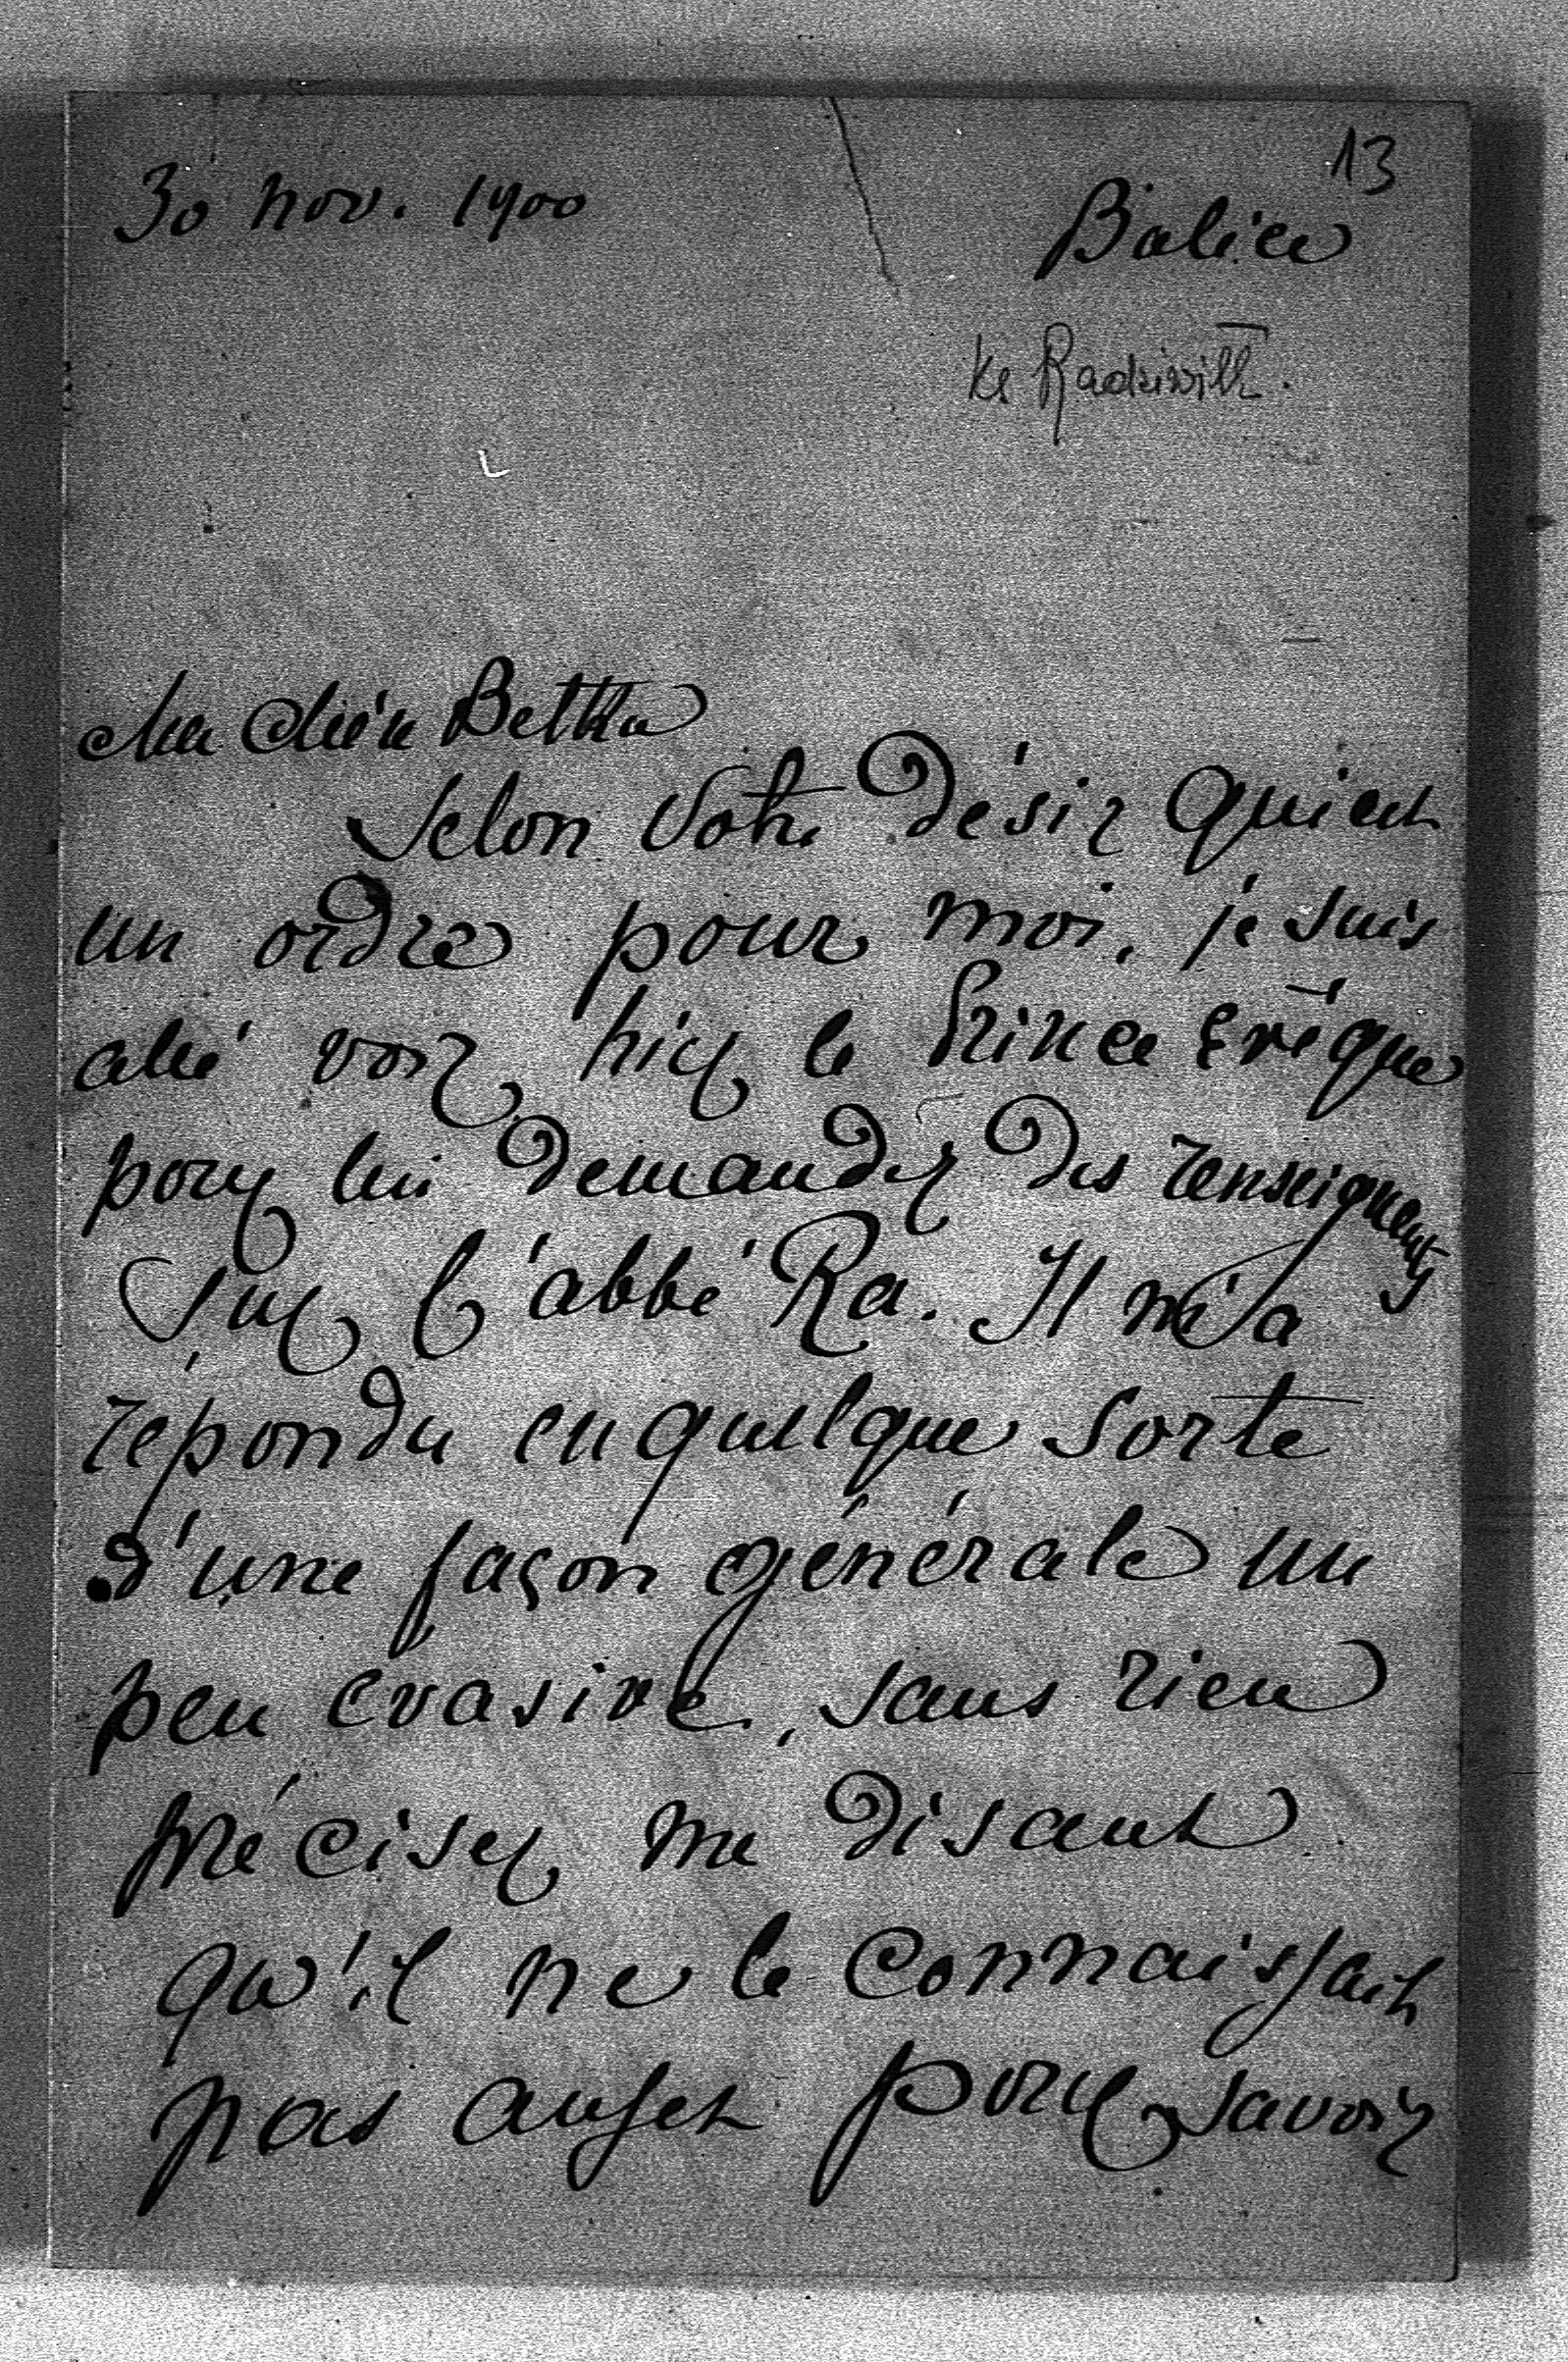 13
30 nov. 1900
Balice
Ks Radziwiłł.
Ma chère Bettka
Selon votre désir qui est
un ordre pour moi, je suis
allé voir hier le Prince Evêque
pour lui demander des renseignements
sur l'abbé Ra. Il m'a
répondu en quelque sorte
d'une façon générale un
peu évasive, sans rien
préciser me disant
qu'il ne le connaissait
pas assez pour savoir